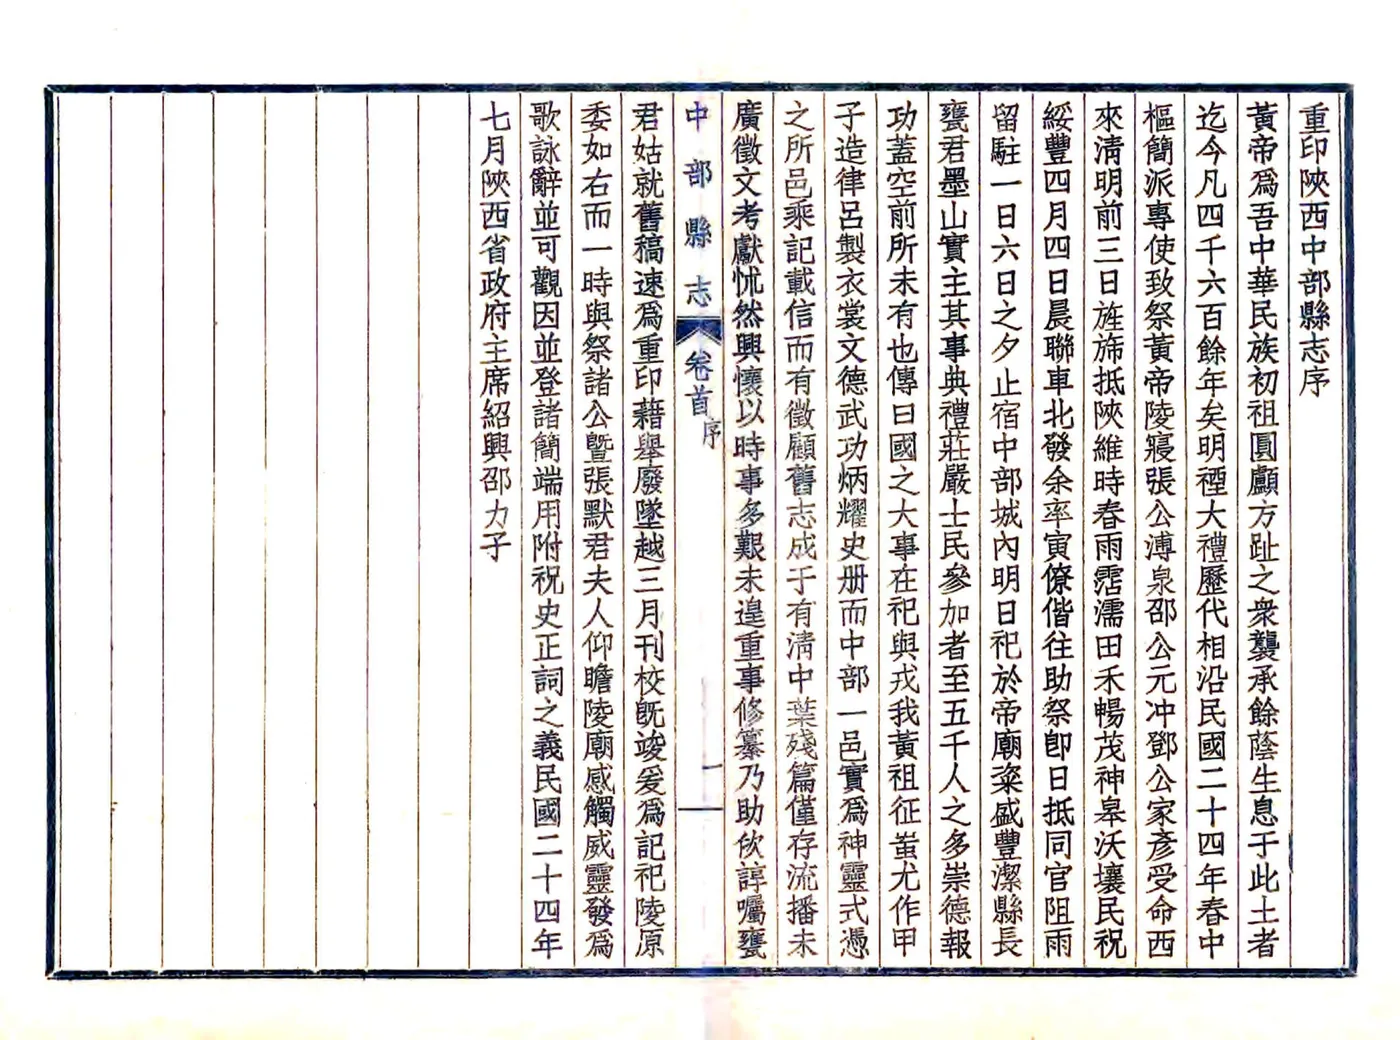 重印陝西中部縣志序
黃帝爲吾中華民族初祖圓顱方趾之衆襲承餘蔭生息于此土者
迄今凡四千六百餘年矣明禋大禮歷代相沿民國二十四年春中
樞簡派專使致祭黃帝陵寢張公溥泉邵公元冲鄧公家彥受命西
來清明前三日旌斾抵陝維時春雨霑濡田禾暢茂神皋沃壤民祝
綏豐四月四日晨聯車北發余率寅僚偕往助祭卽日抵同官阻雨
留駐一日六日之夕止宿中部城內明日祀於帝廟粢盛豐潔縣長
甕君墨山實主其事典禮莊嚴士民參加者至五千人之多崇德報
功蓋空前所未有也傳曰國之大事在祀與戎我黃祖征蚩尤作甲
子造律呂製衣裳文德武功炳耀史册而中部一邑實爲神靈式憑
之所邑乘記載信而有徵顧舊志成于有清中葉殘篇僅存流播未
廣徵文考獻怵然興懷以時事多艱未遑重事修纂乃助佽諄囑甕
中部縣志 卷首 序 一
君姑就舊稿速爲重印藉舉廢墜越三月刊校旣竣爰爲記祀陵原
委如右而一時與祭諸公曁張默君夫人仰瞻陵廟感觸威靈發爲
歌詠辭並可觀因並登諸簡端用附祝史正詞之義民國二十四年
七月陝西省政府主席紹興邵力子